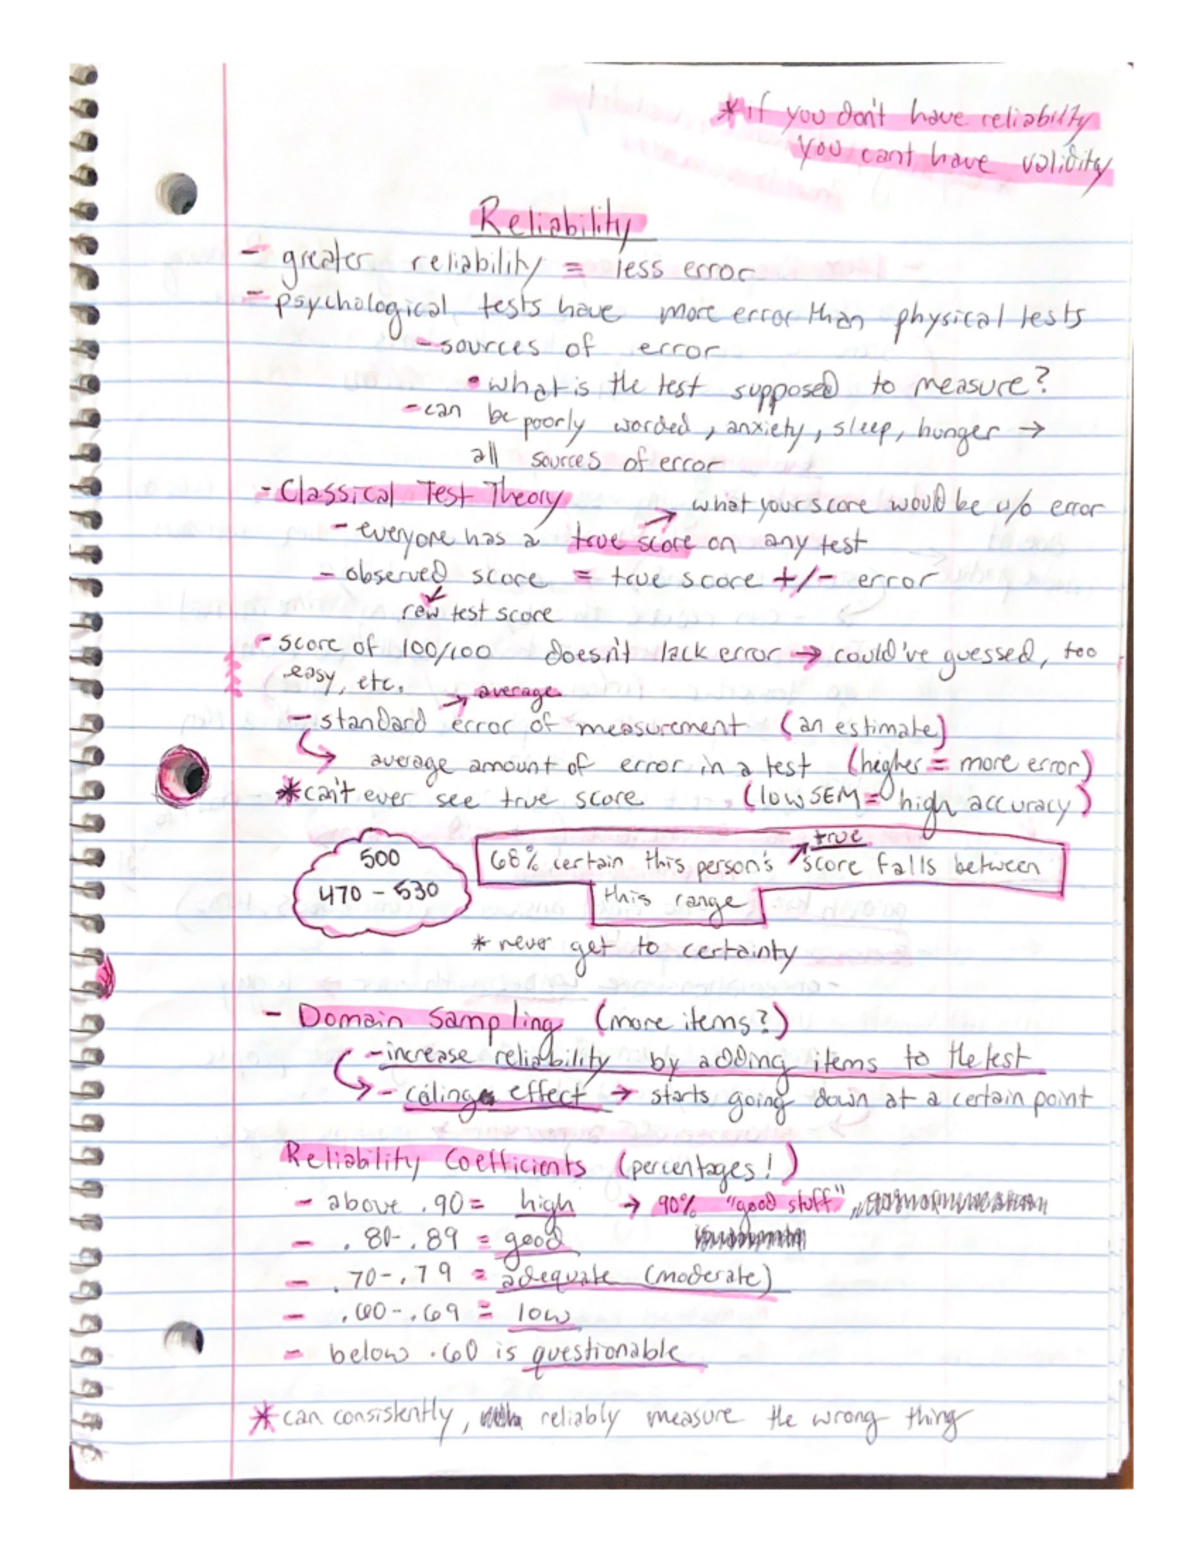 *if you don't have reliability
you cant have validity
Reliability
- greater reliability = less error
- psychological tests have more error than physical tests
- sources of error
• what is the test supposed to measure?
- can be poorly worded, anxiety, sleep, hunger →
all sources of error
- Classical Test Theory
→ what your score would be w/o error
- everyone has a true score on any test
- observed score = true score +/- error
raw test score
- score of 100/100 doesn't lack error → could've guessed, too
easy, etc.
→ average
- standard error of measurement (an estimate)
↳ average amount of error in a test (higher = more error)
*can't ever see true score (low SEM = high accuracy)
500
470 - 530
true
68% certain this person's score falls between
this range
* never get to certainty
- Domain Sampling (more items?)
- increase reliability by adding items to the test
↳ - effect → starts going down at a certain point
Reliability Coefficients (percentages!)
- above .90 = high → 90% "good stuff"
- .80-.89 = good
- .70-.79 = adequate (moderate)
- .60-.69 = low
- below .60 is questionable
*can consistently, reliably measure the wrong thing